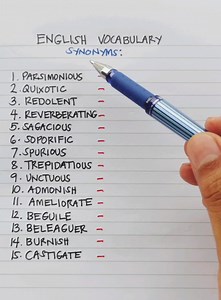 ENGLISH VOCABULARY
SYNONYMS:
1. PARSIMONIOUS -
2. QUIXOTIC -
3. REDOLENT -
4. REVERBERATING -
5. SAGACIOUS -
6. SOPORIFIC -
7. SPURIOUS -
8. TREPIDATIOUS -
9. UNCTUOUS -
10. ADMONISH -
11. AMELIORATE -
12. BEGUILE -
13. BELEAGUER -
14. BURNISH -
15. CASTIGATE -